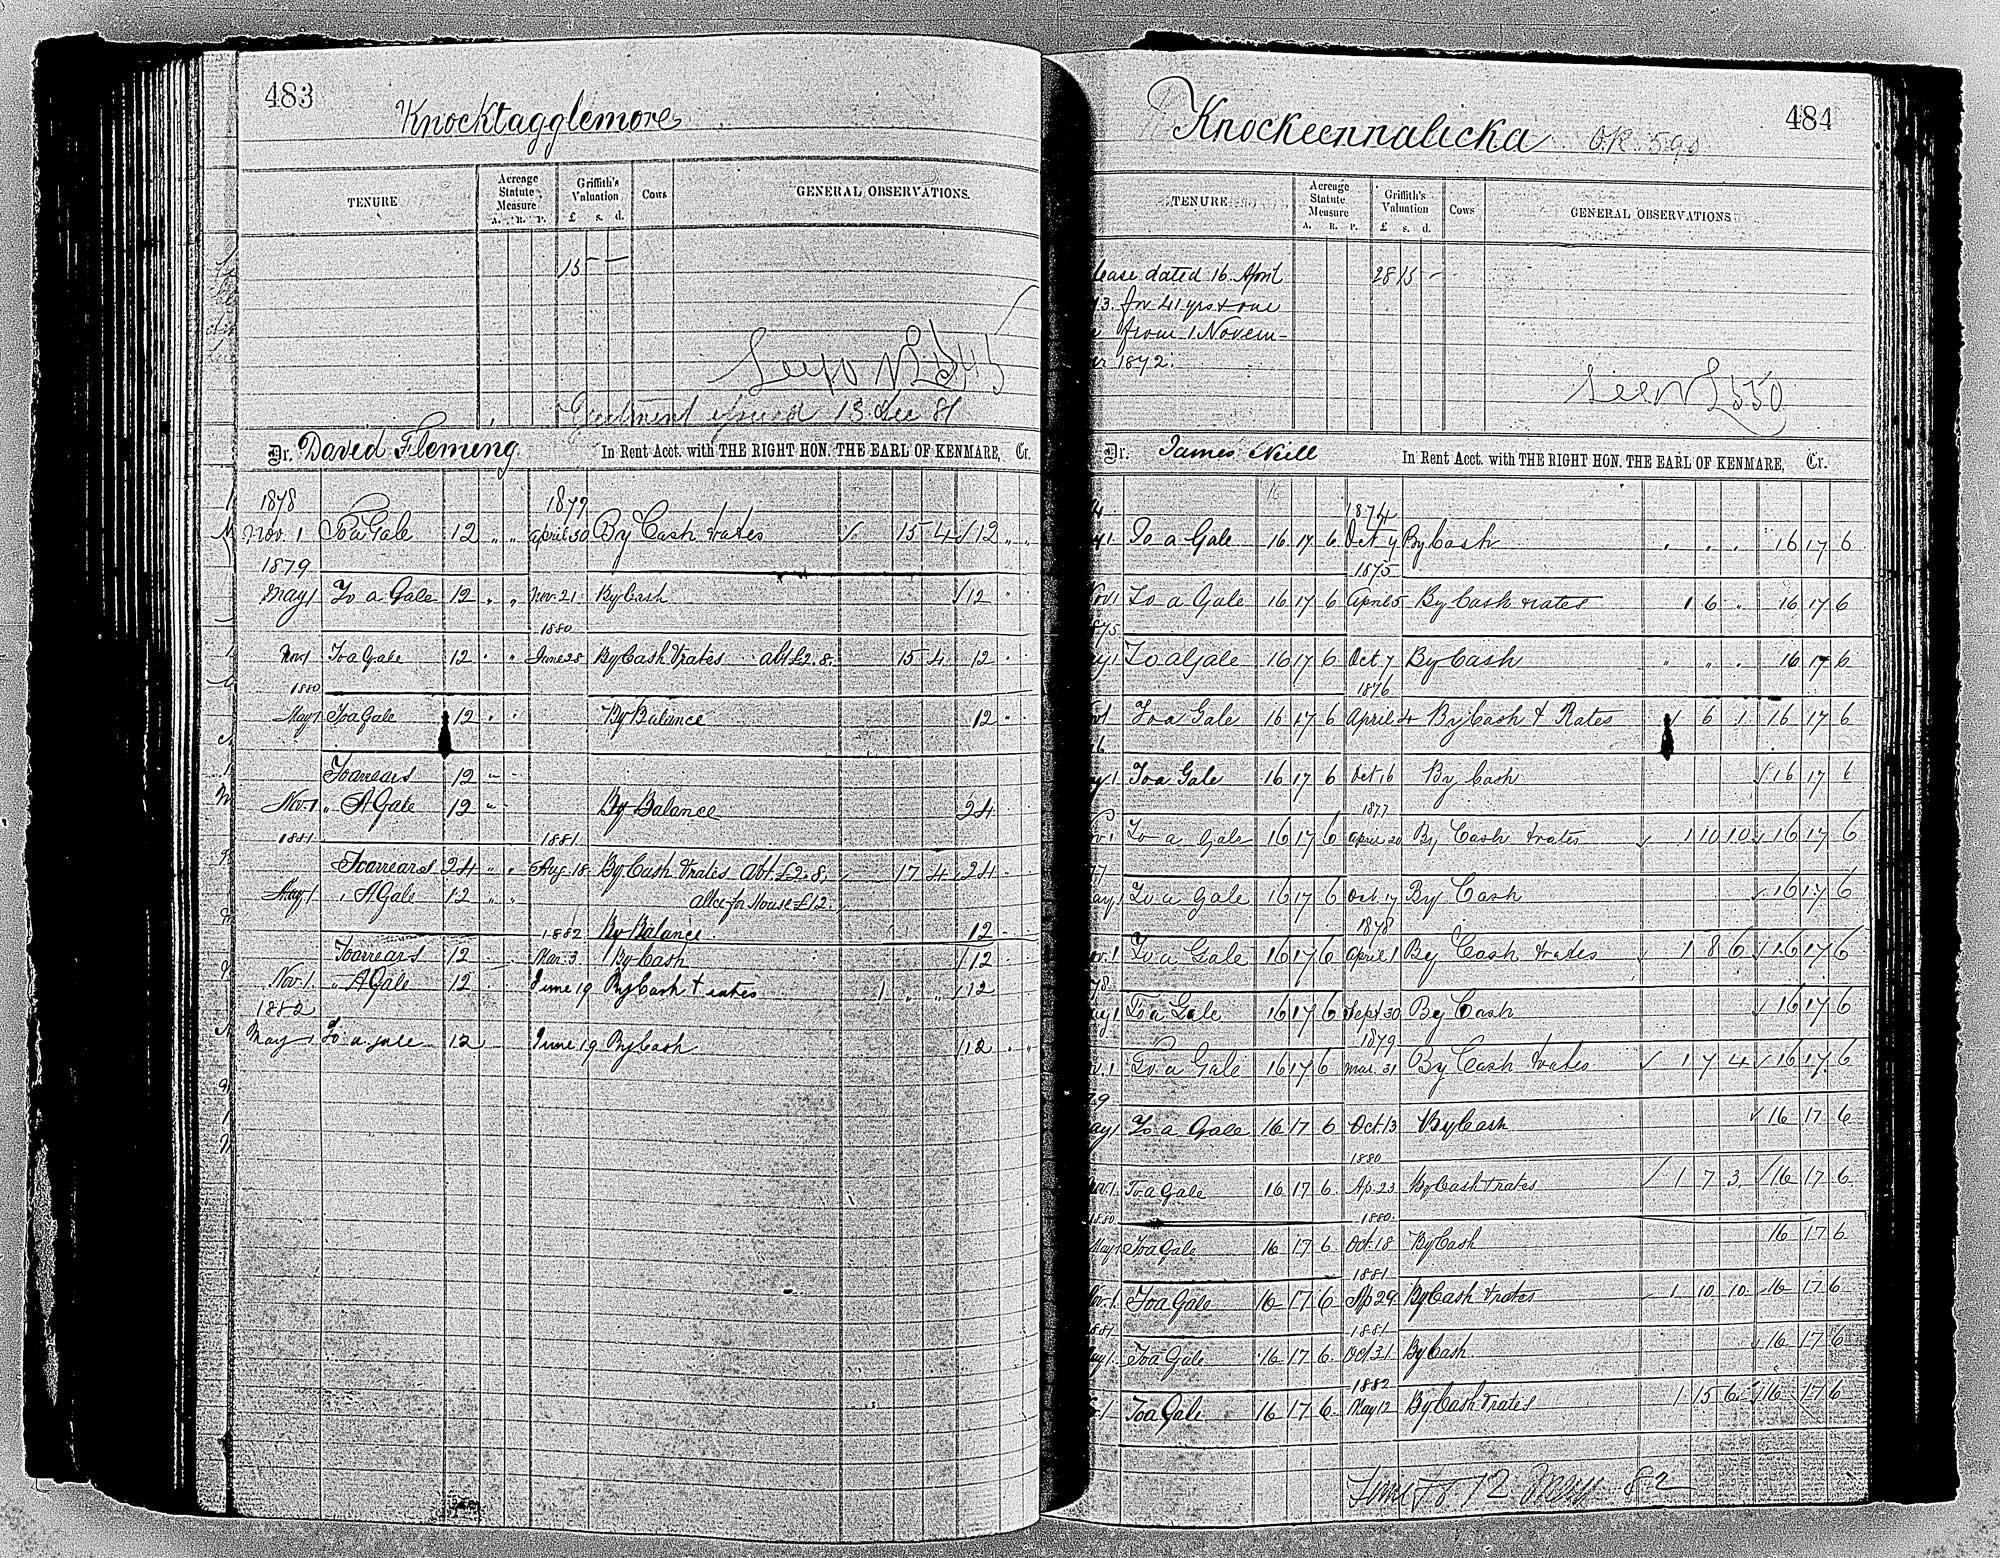 483
Knocktagglemore
TENURE
Acreage Statute Measure
A. R. P.
Griffith's Valuation
£ s. d.
Cows
GENERAL OBSERVATIONS.
15 - -
Ejectment issued 13 Dec 81
Dr. David Fleming In Rent Acct. with THE RIGHT HON. THE EARL OF KENMARE, Cr.
1878 1879
Nov. 1 To a Gale 12 " " April 30 By Cash & rates 15 4 12 " "
1879
May 1 To a Gale 12 " " Nov. 21 By Cash 12 "
1880
Nov 1 To a Gale 12 " " June 28 By Cash & rates abt £2.8. 15 4 12
1880
May 1 To a Gale 12 " " By Balance 12
To arrears 12 " "
Nov. 1 " A Gale 12 " By Balance 24
1881 1881
To arrears 24 " " Aug. 18 By Cash & rates abt. £2.8. 17 4 24
May 1 " A Gale 12 " " allce for House £12.
1882 By Balance 12
To arrears 12 Mar. 3 By Cash 12
Nov. 1 " A Gale 12 June 19 By Cash & rates 1 " " 12
1882
May 1 To a gale 12 June 19 By Cash 12 " "
484
Knockeennalicka O.R. 590
TENURE
Acreage Statute Measure
A. R. P.
Griffith's Valuation
£ s. d.
Cows
GENERAL OBSERVATIONS
lease dated 16 April
73. for 41 yrs & one
from 1 Novem-
1872.
28 15 -
See N L 550
Dr. James Neill In Rent Acct. with THE RIGHT HON. THE EARL OF KENMARE, Cr.
1874
To a Gale 16 17 6 Oct 7 By Cash " " " 16 17 6
1875
To a Gale 16 17 6 April 5 By Cash & rates 1 6 " 16 17 6
To a Gale 16 17 6 Oct. 7 By Cash " " " 16 17 6
1876
To a Gale 16 17 6 April 4 By Cash & Rates 1 6 1 16 17 6
To a Gale 16 17 6 Oct 16 By Cash 16 17 6
1877
To a Gale 16 17 6 April 20 By Cash & rates 1 10 10 16 17 6
To a Gale 16 17 6 Oct. 17 By Cash 16 17 6
1878
To a Gale 16 17 6 April 1 By Cash & rates 1 8 6 16 17 6
To a Gale 16 17 6 Sept 30 By Cash 16 17 6
1879
To a Gale 16 17 6 Mar. 31 By Cash & rates 1 7 4 16 17 6
To a Gale 16 17 6 Oct. 13 By Cash 16 17 6
1880
To a Gale 16 17 6 Ap. 23 By Cash & rates 1 7 3 16 17 6
1880 1880
May 1 To a Gale 16 17 6 Oct. 18 By Cash 16 17 6
1881
To a Gale 16 17 6 Ap 29 By Cash & rates 1 10 10 16 17 6
1881 1881
To a Gale 16 17 6 Oct 31 By Cash 16 17 6
1882
To a Gale 16 17 6 May 12 By Cash & rates 1 15 6 16 17 6
Time to 12 May 82